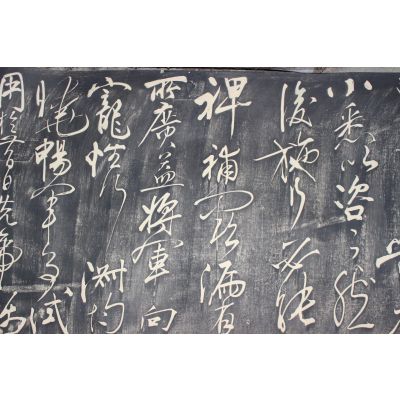 小悉以咨之然
後施行必能
裨補闕漏有
所廣益將軍向
寵性行淑均
曉暢軍事試
用於昔日先帝